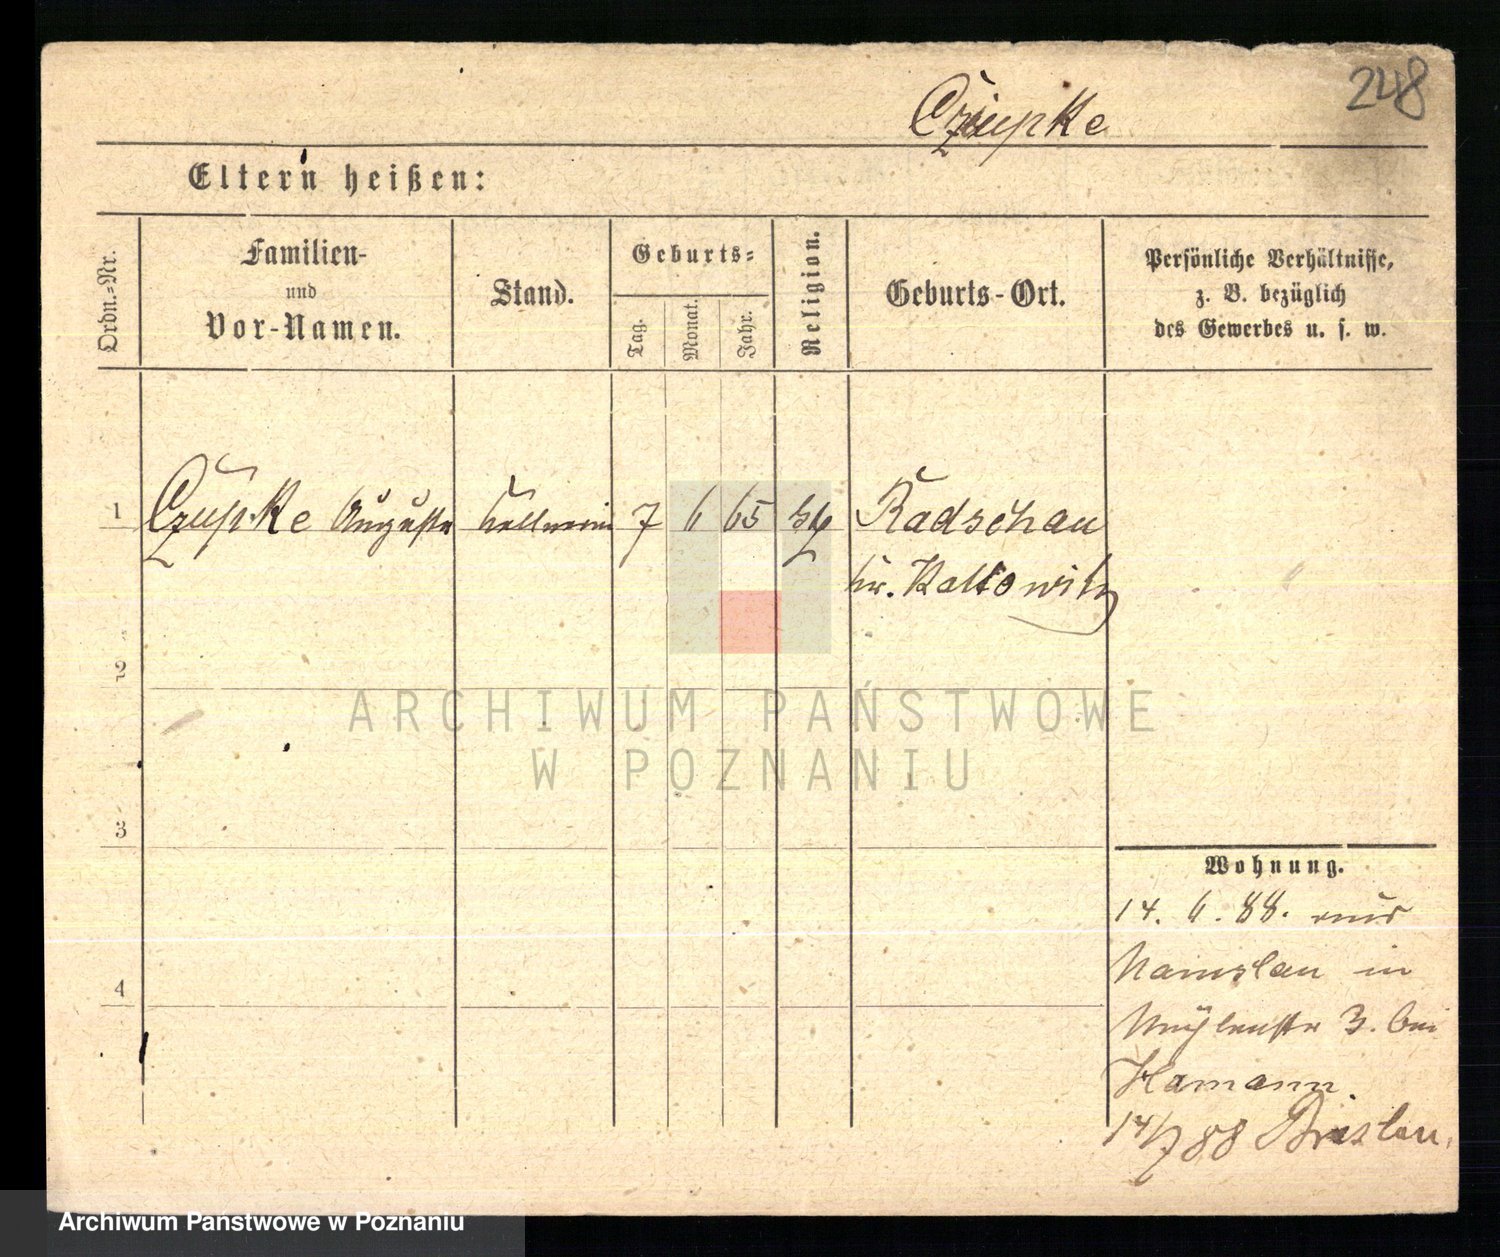 248
Czupke
Eltern heißen:
Ordn.-Nr.
Familien-
und
Vor-Namen.
Stand.
Geburts-
Tag.
Monat.
Jahr.
Religion.
Geburts-Ort.
Persönliche Verhältnisse,
z. B. bezüglich
des Gewerbes u. s. w.
1 Czupke Auguste Kellnerin 7 6 65 Radschau
Kr. Kattowitz
2
3
4
Wohnung.
14. 6. 88. aus
Namslau in
Mühlenstr 3. bei
Hamann
14/7 88 Breslau.
ARCHIWUM PAŃSTWOWE
W POZNANIU
Archiwum Państwowe w Poznaniu